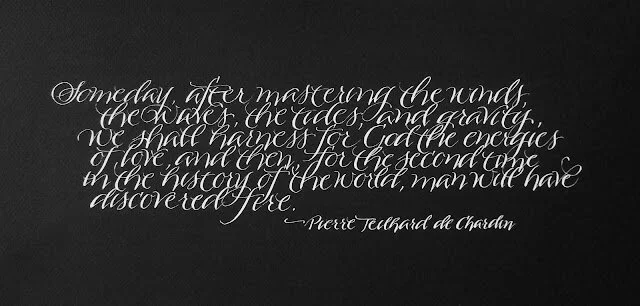 Someday, after mastering the winds,
the waves, the tides, and gravity,
we shall harness for God the energies
of love, and then, for the second time
in the history of the world, man will have
discovered fire.
Pierre Teilhard de Chardin